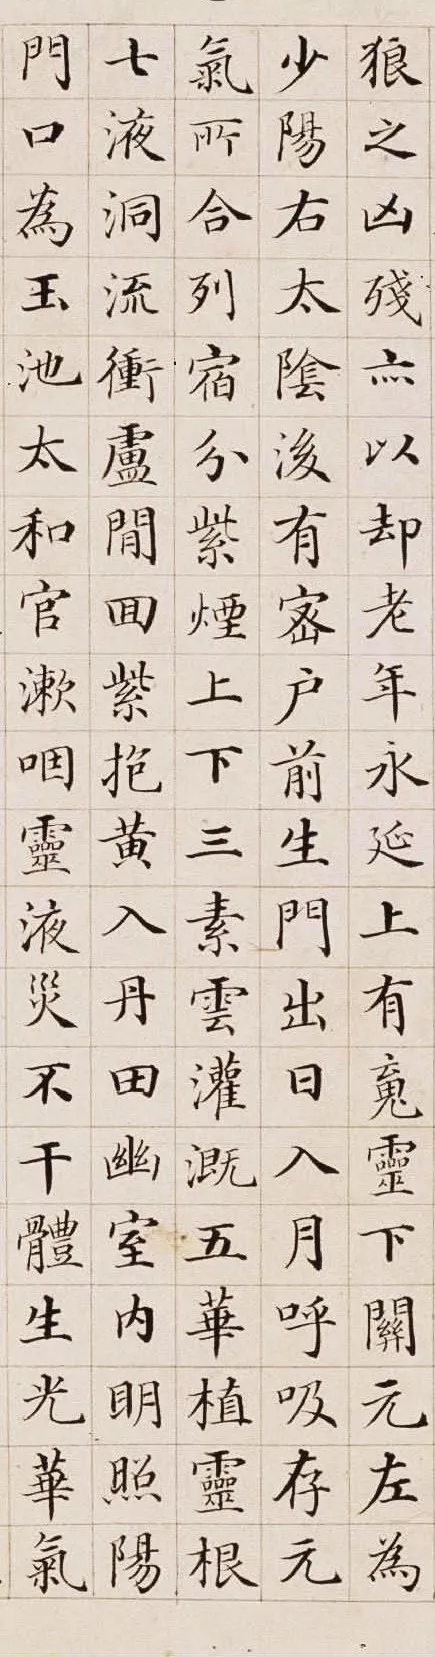 狼之凶殘亦以却老年永延上有䰟靈下關元左為
少陽右太陰後有密戶前生門出日入月呼吸存元
氣所合列宿分紫煙上下三素雲灌溉五華植靈根
七液洞流衝廬間回紫抱黃入丹田幽室内明照陽
門口為玉池太和官漱咽靈液災不干體生光華氣